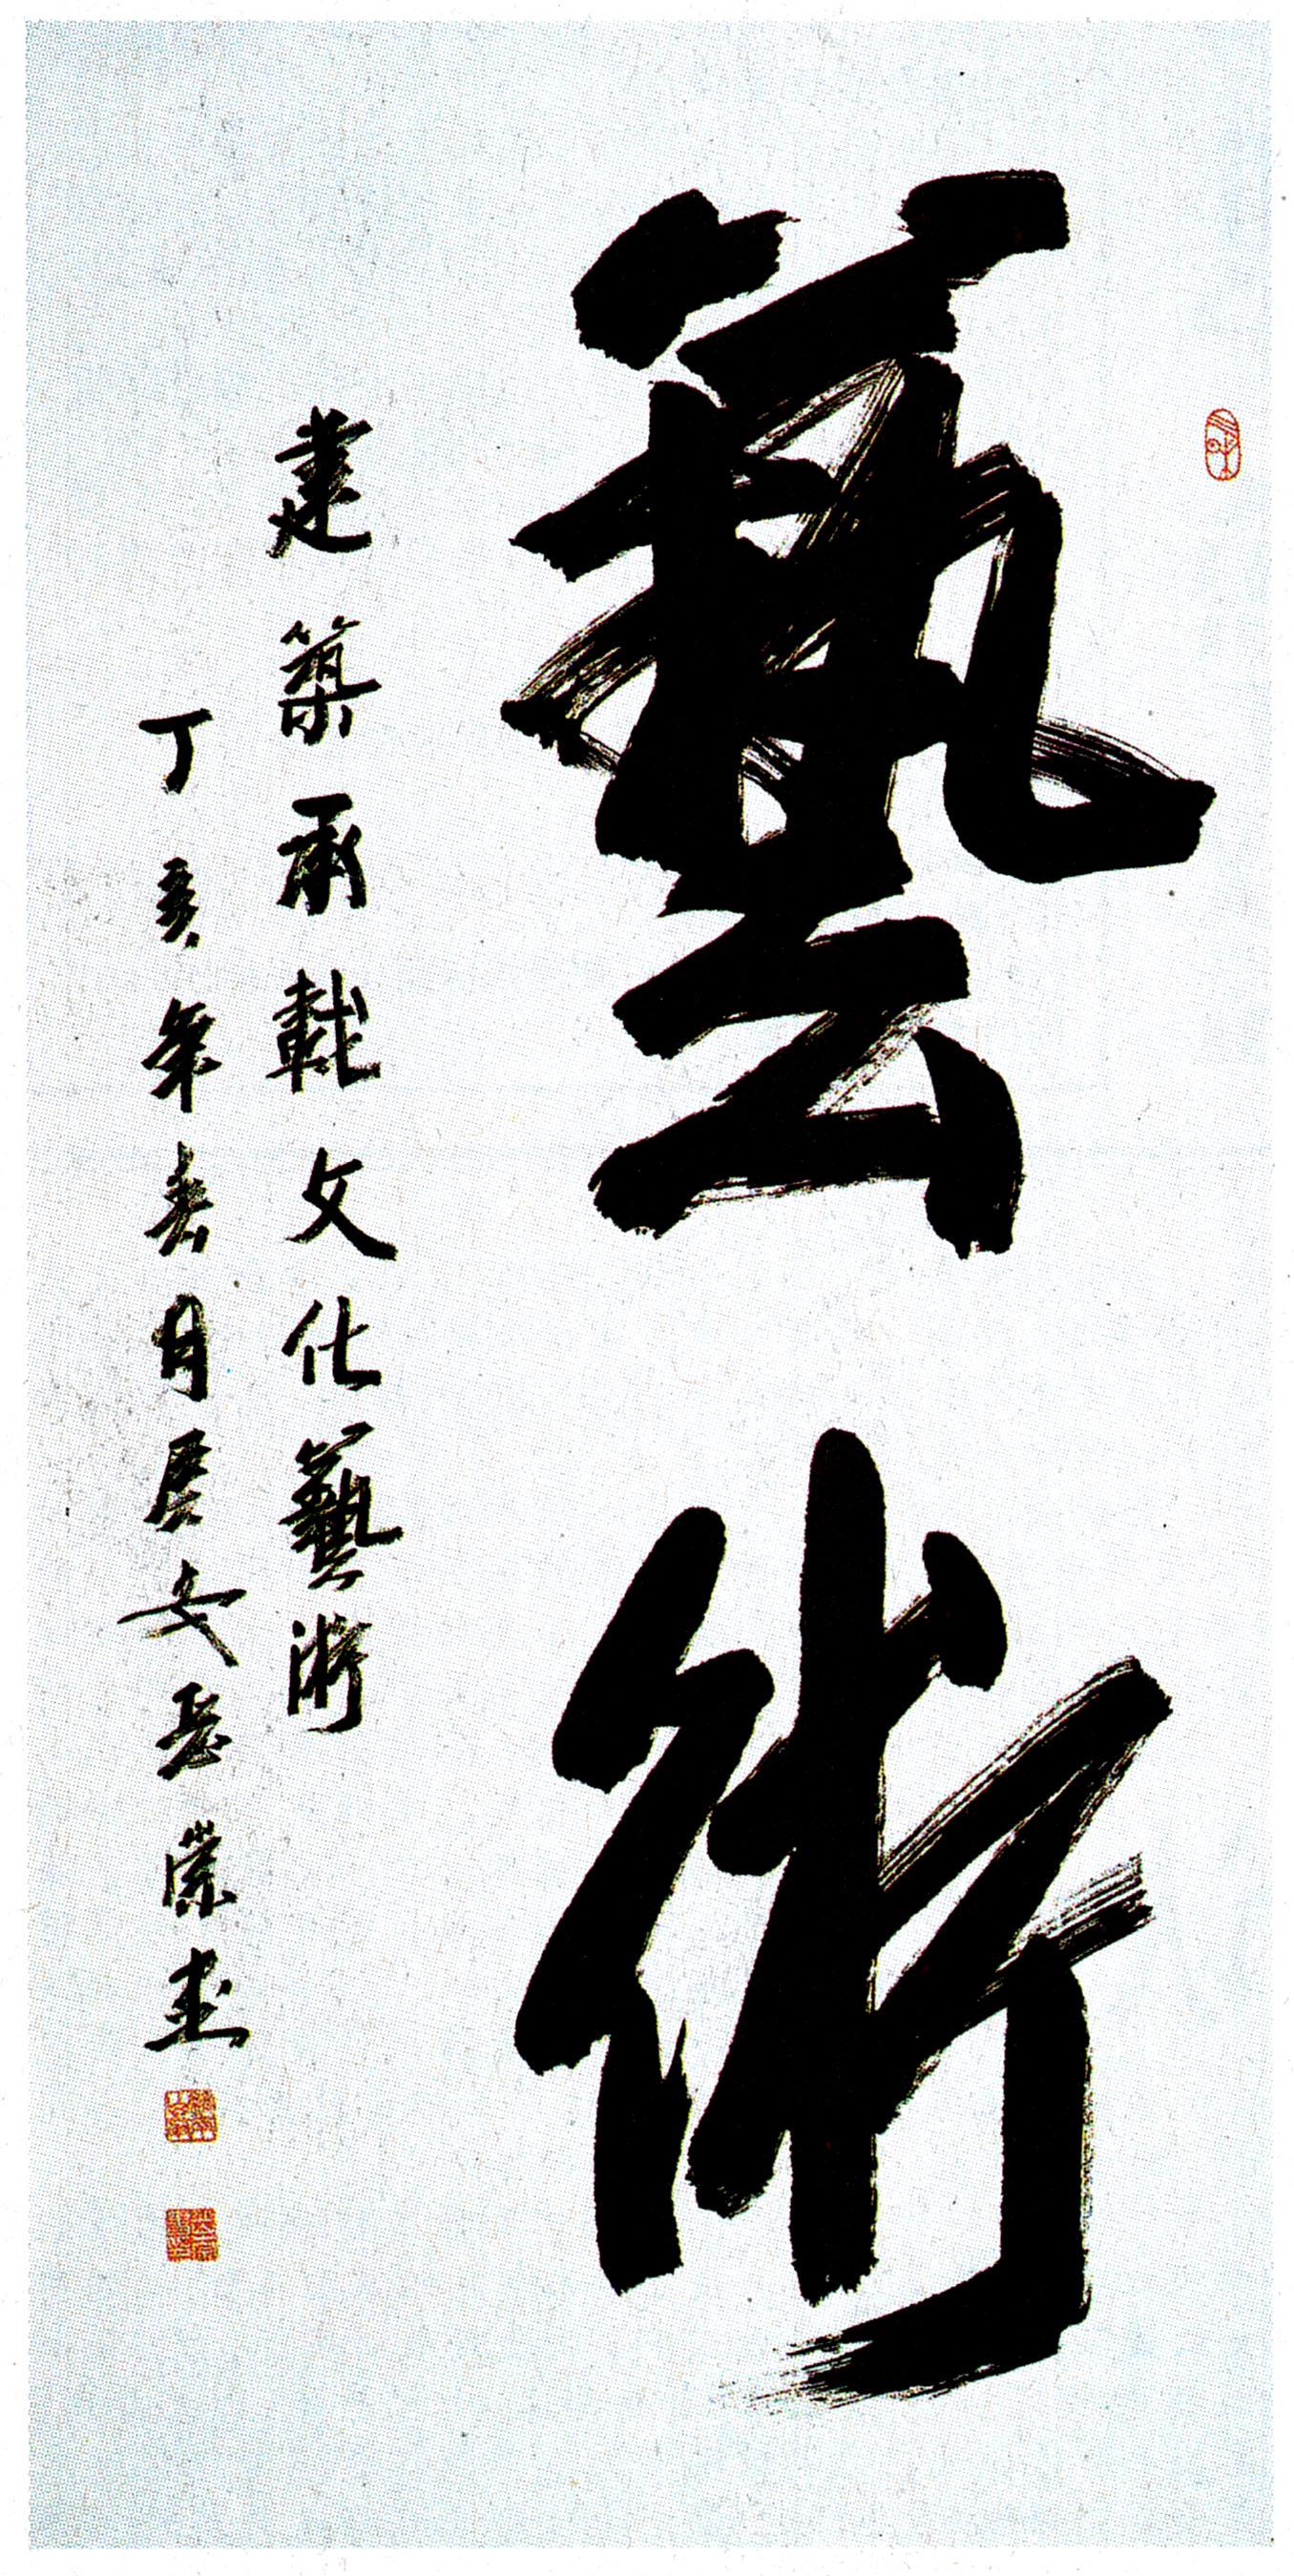 藝術
建築承載文化藝術
丁亥年春月居安思榮書